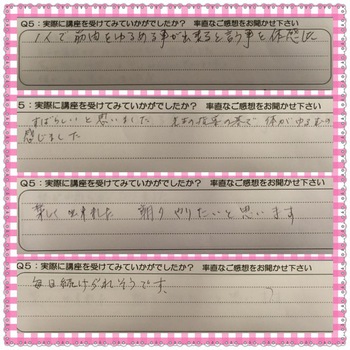 Q5：実際に講座を受けてみていかがでしたか？　率直なご感想をお聞かせ下さい
1人で筋肉をゆるめる事が出来ると言う事を体感した
5：実際に講座を受けてみていかがでしたか？　率直なご感想をお聞かせ下さい
すばらしいと思いました 体がゆるむの
感じました
Q5：実際に講座を受けてみていかがでしたか？　率直なご感想をお聞かせ下さい
楽しく 出来れた やりたいと思います
Q5：実際に講座を受けてみていかがでしたか？　率直なご感想をお聞かせ下さい
毎日続けられそうです。